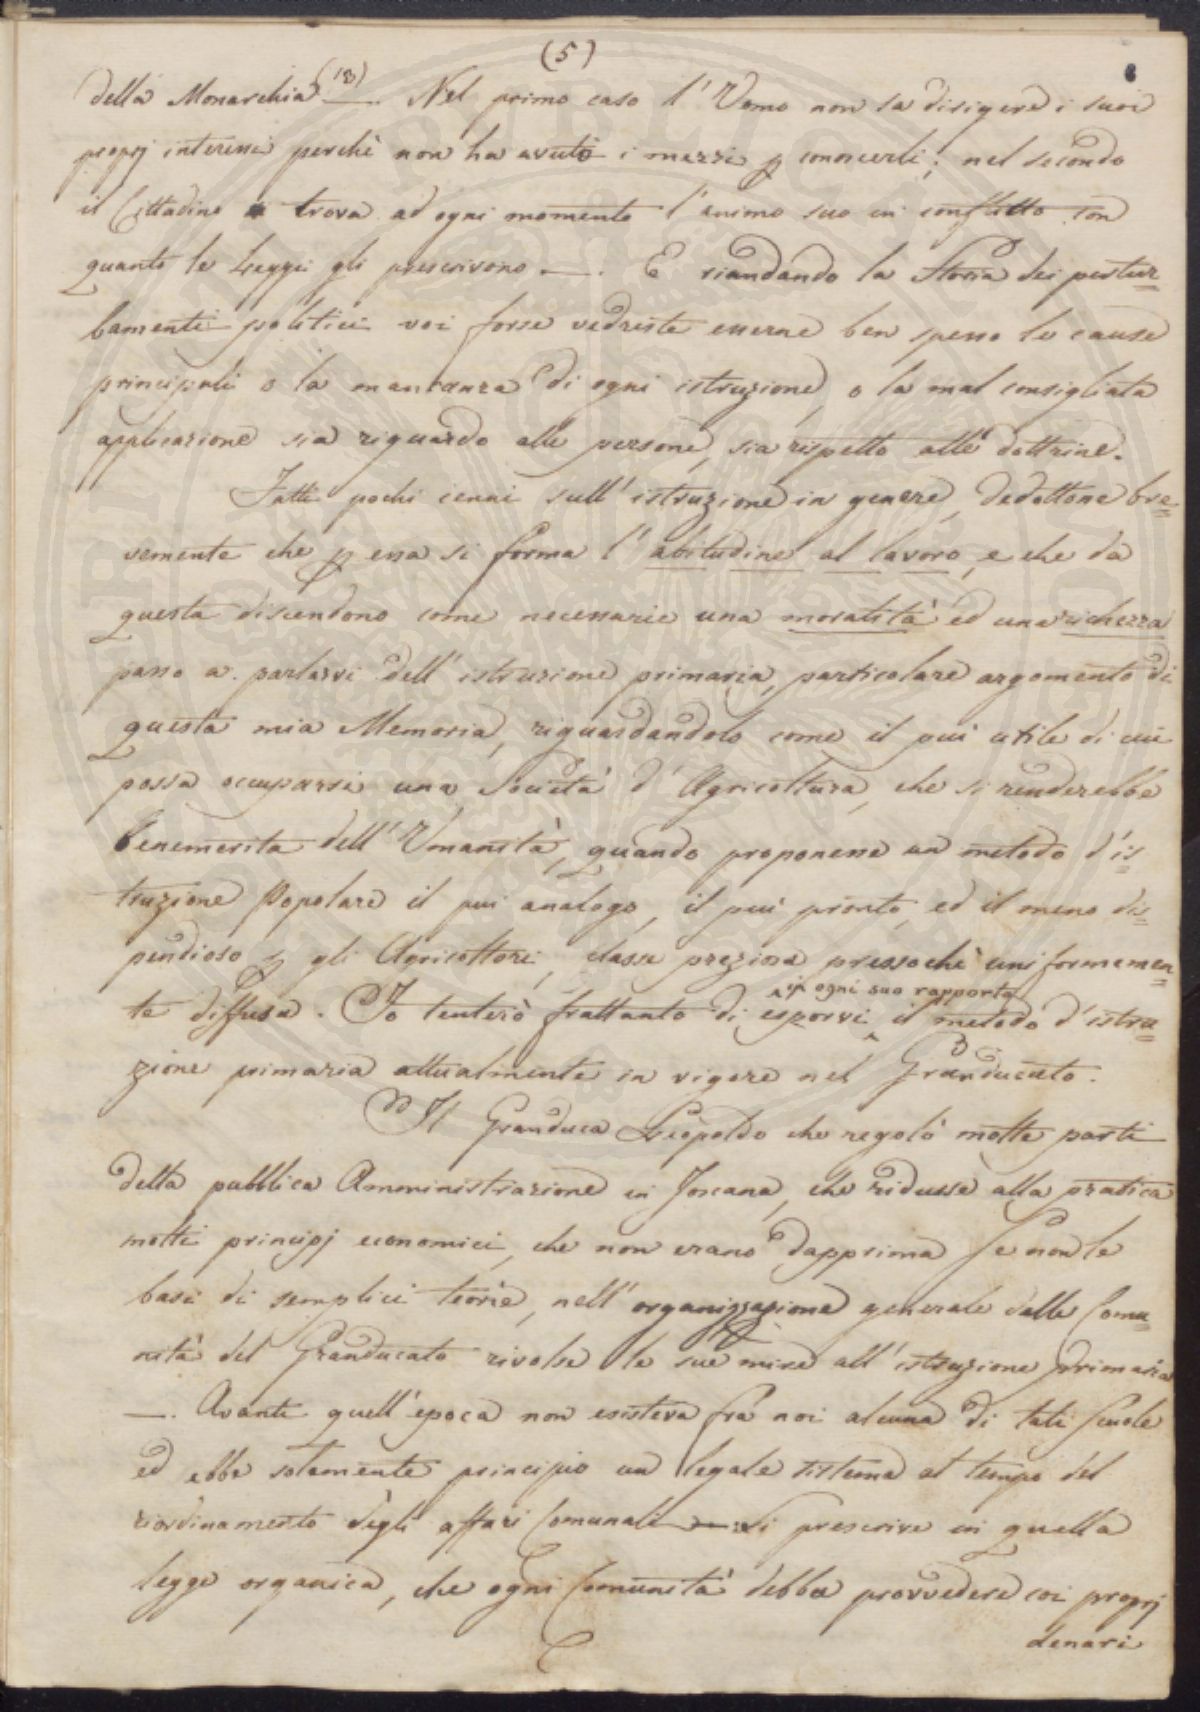 (5)
della Monarchia (13) —. Nel primo caso l'Uomo non sa dirigere i suoi
proprj interessi perchè non ha avuto i mezzi p conoscerli; nel secondo
il Cittadino trova ad ogni momento l'animo suo in conflitto con
quanto le Leggi gli prescrivono —. E riandando la Storia dei pertur=
bamenti politici voi forse vedreste esserne ben spesso le cause
principali o la mancanza di ogni istruzione, o la mal consigliata
applicazione sia riguardo alle persone, sia rispetto alle dottrine.
Fatti pochi cenni sull'istruzione in genere, dedottone bre=
vemente che p essa si forma l'abitudine al lavoro, e che da
questa discendono come necessarie una moralità ed una richezza
passo a parlarvi dell'istruzione primaria, particolare argomento di
questa mia Memoria, riguardandolo come il più utile di cui
possa occuparsi una Società d'Agricoltura, che si renderebbe
benemerita dell'Umanità, quando proponesse un metodo d'is=
truzione Popolare il più analogo, il più pronto, ed il meno dis=
pendioso p gli Agricoltori, classe preziosa pressochè uniformemen=
te diffusa. Io tenterò frattanto di esporvi in ogni suo rapporto il metodo d'istru=
zione primaria attualmente in vigore nel Granducato.
Il Granduca Leopoldo che regolò molte parti
della pubblica Amministrazione in Toscana, che ridusse alla pratica
molti principj economici, che non erano dapprima se non le
basi di semplici teorie, nell'organizzazione generale delle Comu=
nità del Granducato rivolse le sue mire all'istruzione primaria
—. Avanti quell'epoca non esisteva frà noi alcuna di tali Scuole
ed ebbe solamente principio un legale sistema al tempo del
riordinamento degli affari Comunali — Si prescrive in quella
legge organica, che ogni Comunità debba provvedere coi proprj
denari